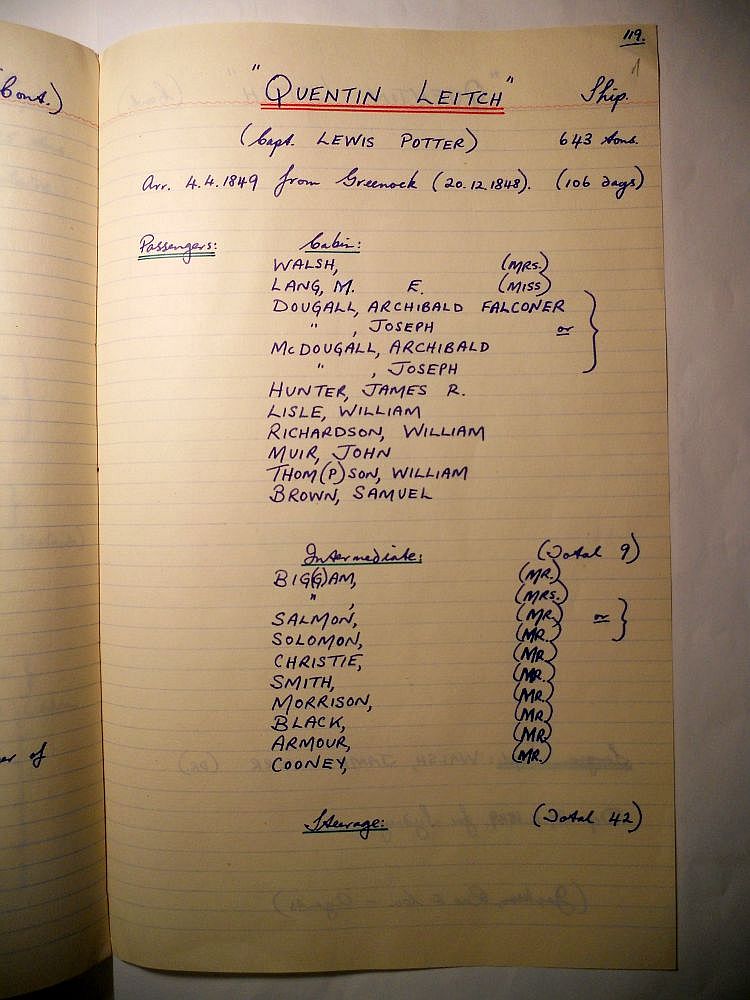 119.
Cont.)
"QUENTIN LEITCH" Ship.
(Capt. LEWIS POTTER) 643 tons.
Arr. 4.4.1849 from Greenock (20.12.1848). (106 days)
Passengers: Cabin:
WALSH, (MRS.)
LANG, M. E. (MISS)
DOUGALL, ARCHIBALD FALCONER
" , JOSEPH or
McDOUGALL, ARCHIBALD
" , JOSEPH
HUNTER, JAMES R.
LISLE, WILLIAM
RICHARDSON, WILLIAM
MUIR, JOHN
THOM(P)SON, WILLIAM
BROWN, SAMUEL
Intermediate: (Total 9)
BIG(G)AM, (MR.)
" , (MRS.)
SALMON, (MR.) or
SOLOMON, (MR.)
CHRISTIE, (MR.)
SMITH, (MR.)
MORRISON, (MR.)
BLACK, (MR.)
ARMOUR, (MR.)
COONEY, (MR.)
of
Steerage: (Total 42)